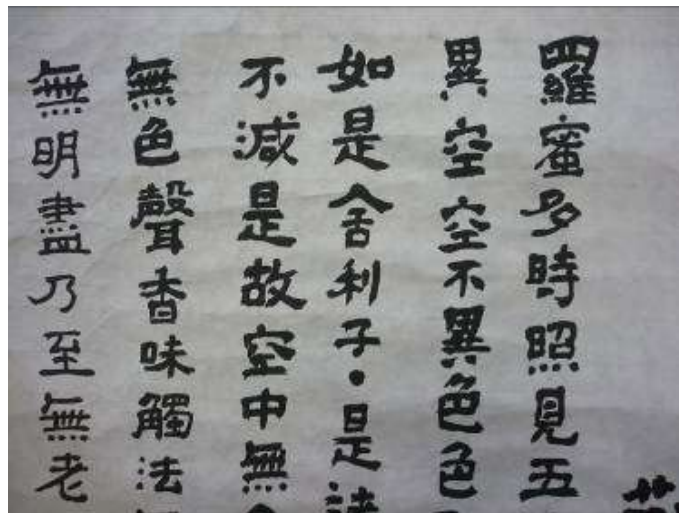 羅蜜多時照見五
異空空不異色色
如是舍利子・是諸
不減是故空中無
無色聲香味觸法
無明盡乃至無老